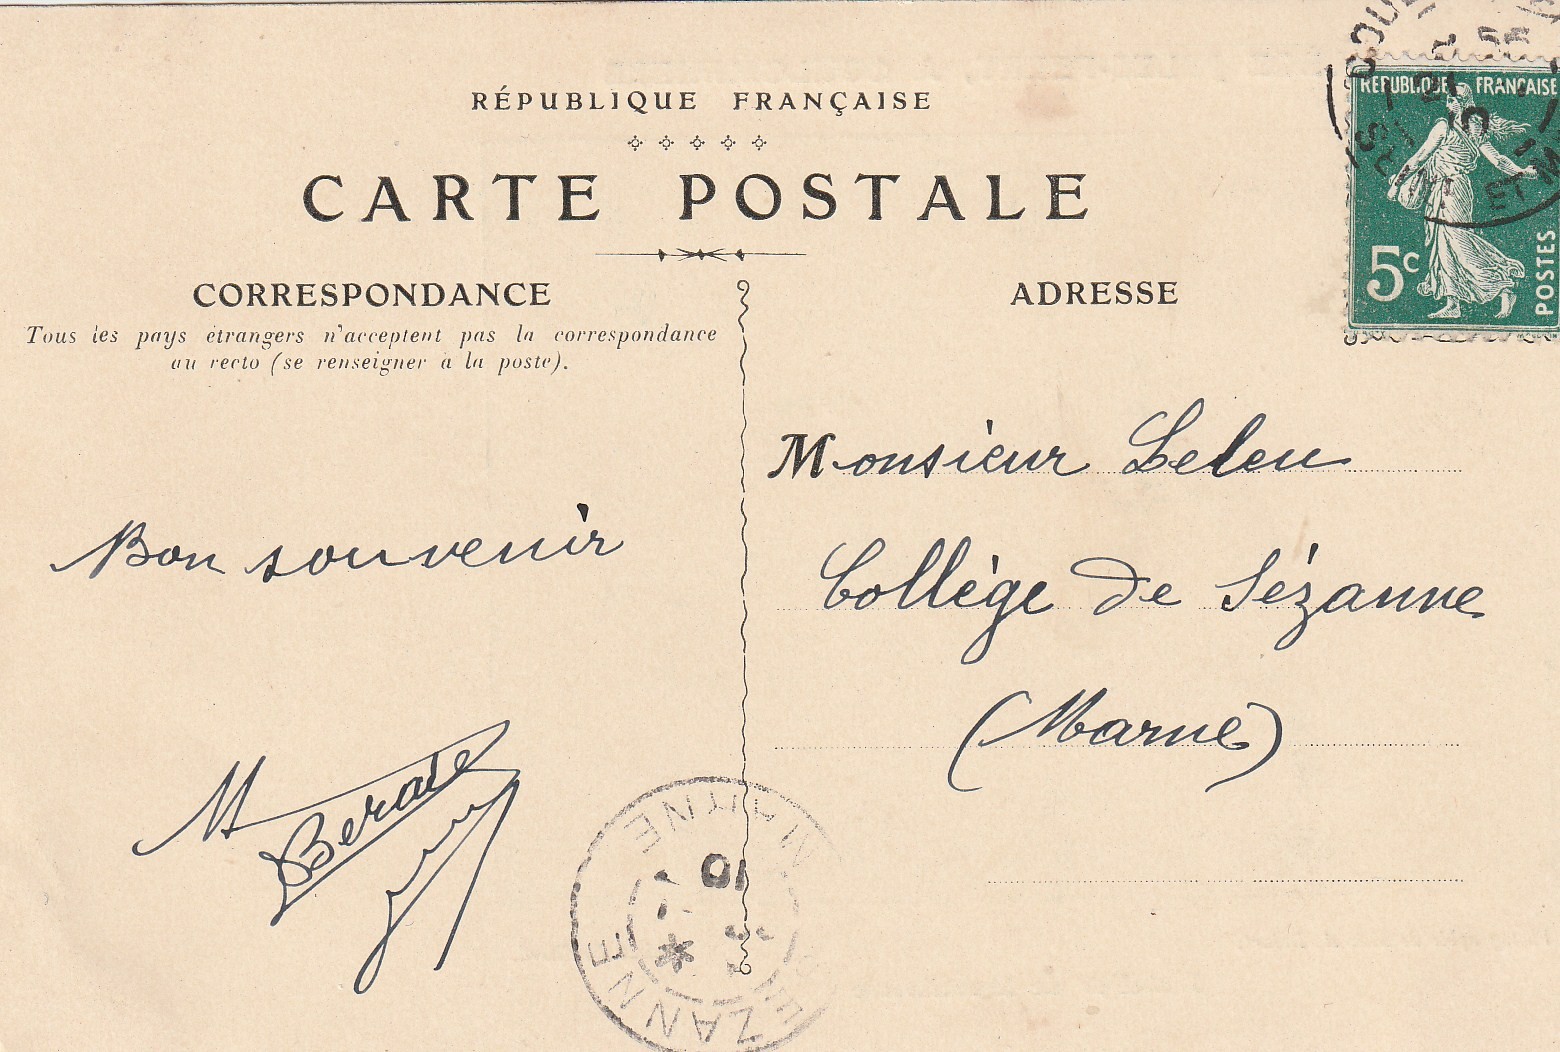 RÉPUBLIQUE FRANÇAISE
CARTE POSTALE
CORRESPONDANCE
Tous les pays étrangers n'acceptent pas la correspondance
au recto (se renseigner à la poste).
Bon souvenir
M Berat
ADRESSE
Monsieur Leleu
Collège de Sézanne
(Marne)
RÉPUBLIQUE FRANÇAISE
5c
POSTES
SEINE ET M
SÉZANNE
MARNE
10